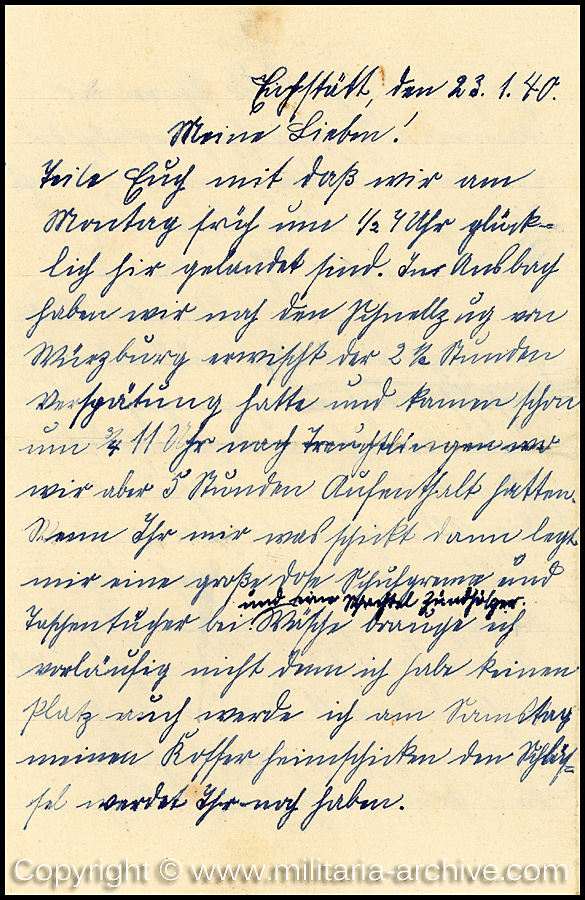 Eichstätt, den 23.1.40.
Meine Lieben!
Teile Euch mit daß wir am
Montag früh um 1/2 4 Uhr glück=
lich hir gelandet sind. In Ansbach
haben wir noch den Schnellzug von
Würzburg erwischt der 2 1/2 Stunden
Verspätung hatte und kamen schon
um 3/4 11 Uhr nach Treuchtlingen wo
wir aber 5 Stunden Aufenthalt hatten.
Wenn Ihr mir was schickt dann legt
mir eine große Dose Schuhgreme und
und eine Schachtel Zündhölzer.
Taschentücher bei. Wäsche brauche ich
vorläufig nicht denn ich habe keinen
Platz auch werde ich am Samstag
meinen Koffer heimschicken den Schlüs=
sel werdet Ihr noch haben.
Copyright © www.militaria-archive.com